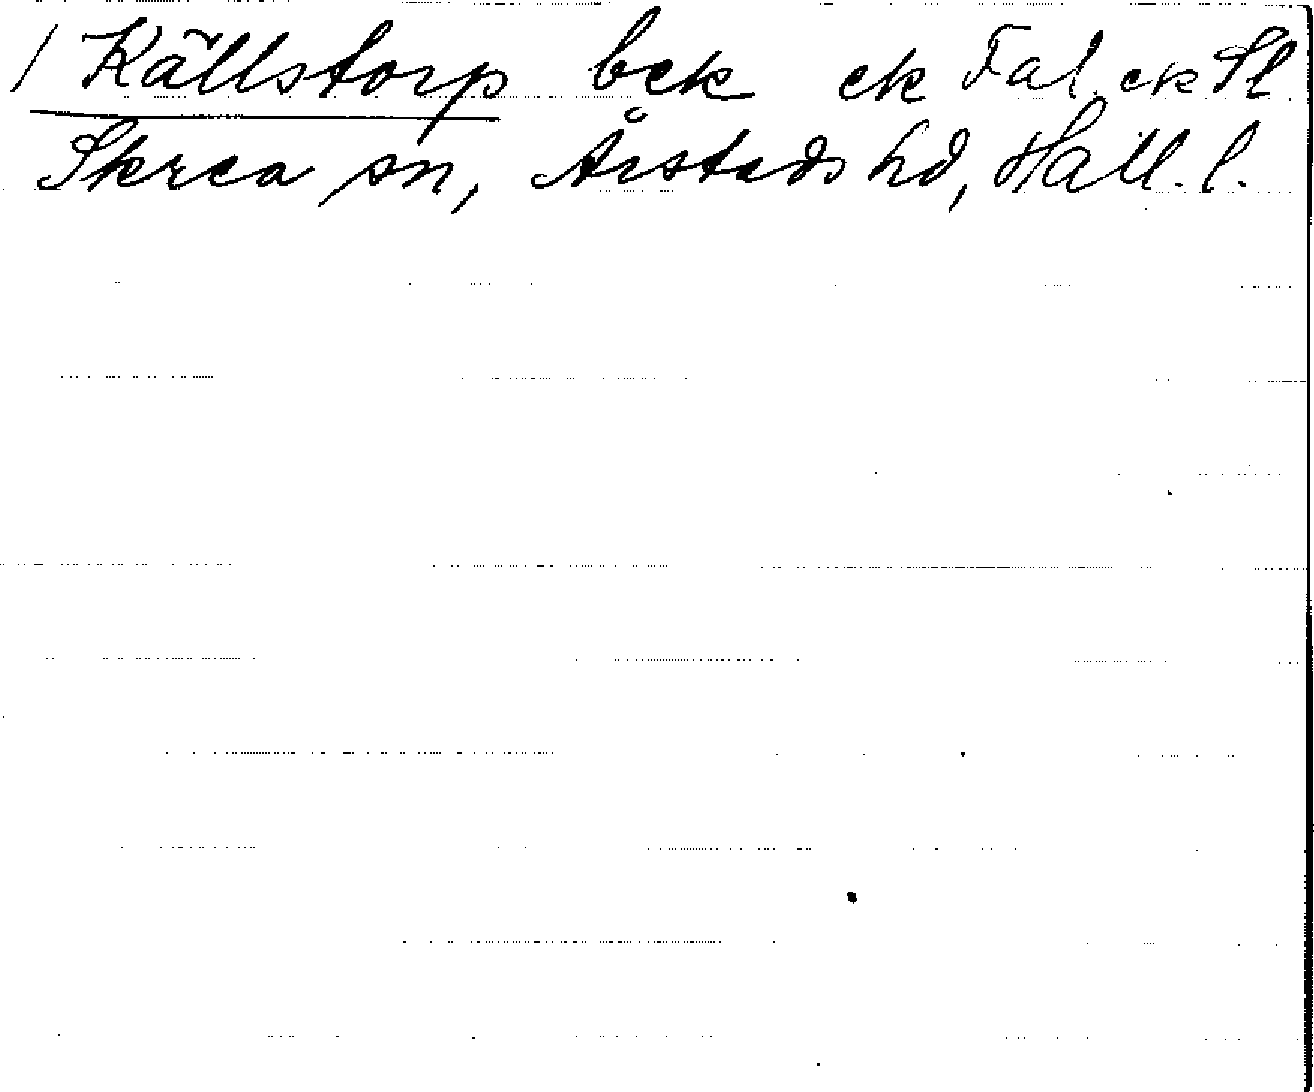 / Källstorp bek ek Fal. ek Sl
Skrea sn, Årstads hd, Hall. l.